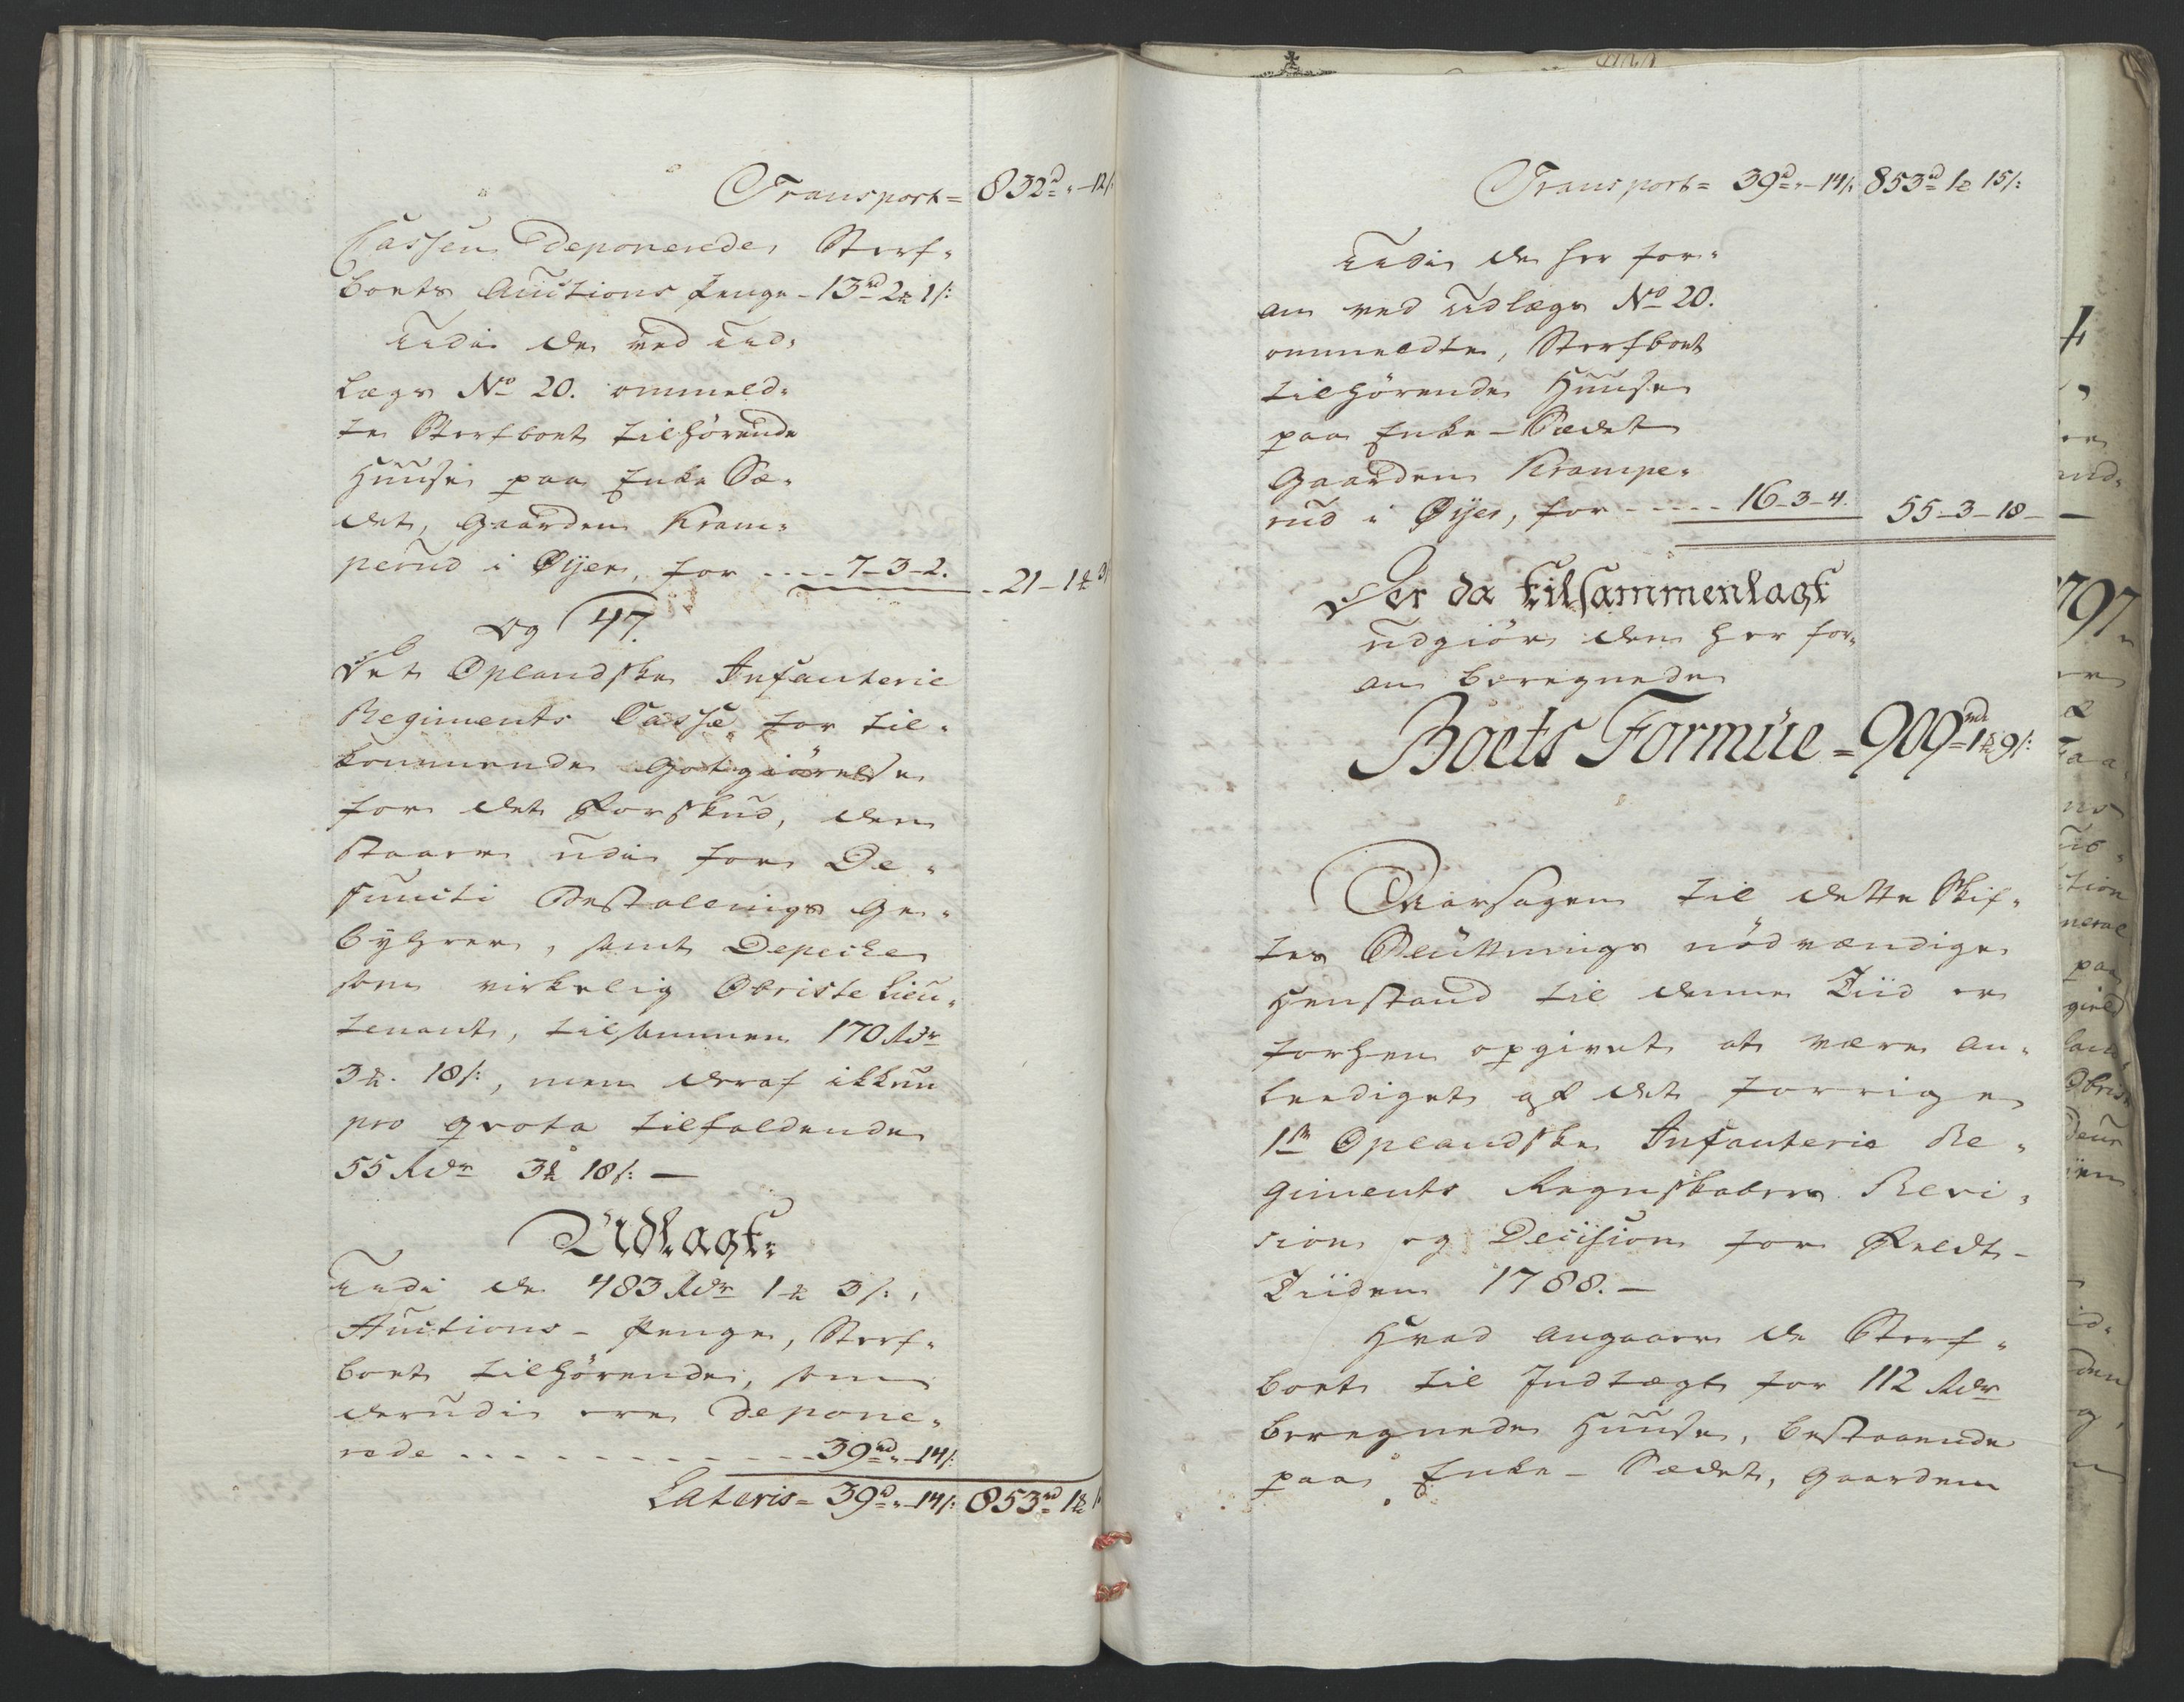 Transport= 832rd „-12/:
Cassen Deponerede, Sterf-
boets Auctions Penge - 13rd 2 1/:
Udi de ved Ud-
lægs No 20. ommeld-
te Sterfboet tilhørende
Huuse paa Enke Sæ-
det, Gaarden Kram-
perud i Øÿer, for .... 7-3-2.
21-1 3/
og 47.
Det Oplandske Infanterie
Regiments Casse, for til-
kommende Godtgiørelse
for det Forskud, den
staaer udi for De-
functi Bestallings Ge-
byhrer, samt Depeche
som virkelig Obriste Lieu-
tenant, tilsammen 170 Rdr
3. 18/:, men deraf ikkun
pro qvota tilfaldende
55 Rdr 3 18/: —
Udlagt:
Udi de 483 Rdr 1 3/:,
Auctions-Penge, Sterf-
boet tilhørende, som
derudi ere Depone-
rede . . . . . . . . . . 39rd „-14/:
Lateris= 39rd „-14/: 853rd 1
Transport= 39rd „-14/: 853rd 1 15/:
Udi de her for-
an ved Udlægs No 20.
ommeldte, Sterfboet
tilhørende Huuse
paa Enke-Sædet
Gaarden Krampe-
rud i Øÿer, for ..... 16-3-4. 55-3-18-
Der da tilsammenlagt
udgiør den her for-
an beregnede
Boets Formüe = 909rd 1 9/:
Aarsagen til dette Skif-
tes Slutnings nødvændige
Henstand til denne Tiid er
forhen opgivet at være an-
lediget af det forrige
1te Oplandske Infanterie Re-
giments Regnskabers Revi-
sion og Decision for Feldt-
Tiiden 1788. —
Hvad angaaer de Sterf-
boet til Indtægt for 112 Rdr
beregnede Huuse, bestaaende
paa Enke-Sædet, Gaarden